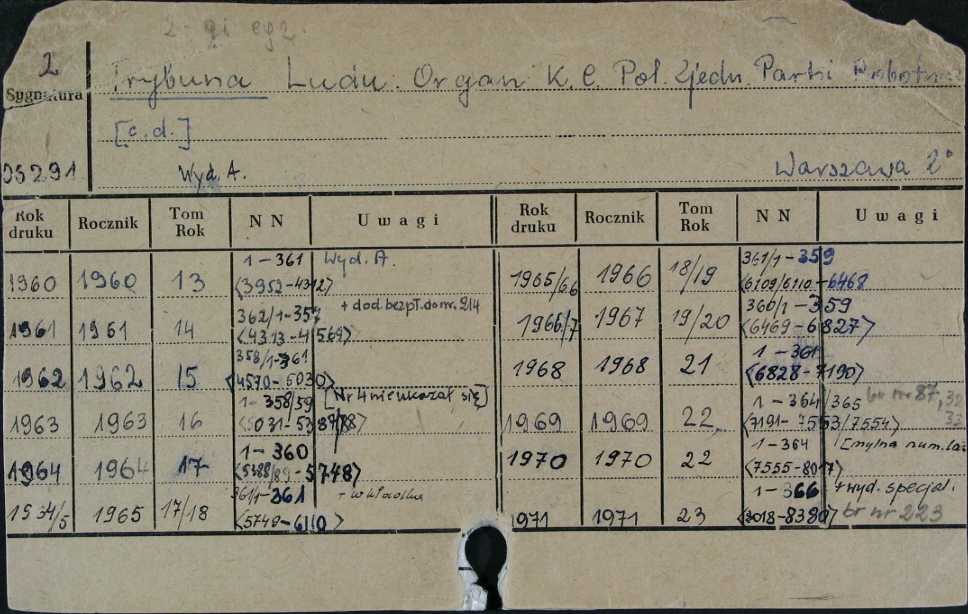 2-gi egz.
2
Sygnatura
Trybuna Ludu. Organ K.C. Pol. Zjedn. Partii Robotn.
[c.d.]
05291
Wyd. A.
Warszawa 2°
Rok druku Rocznik Tom Rok NN Uwagi Rok druku Rocznik Tom Rok NN Uwagi
1960 1960 13 1-361 <3952-4312> Wyd. A.
1961 1961 14 362/1-357 <4313-4569> + dod. bezpł. do nr. 214
1962 1962 15 358/1-361 <4570-5030>
1963 1963 16 1-358/59 [Nr 4 nie ukazał się]
1964 1964 17 1-360 <5388/89-5748>
1964/5 1965 17/18 361/1-361 <5749-6110> + wkładka
1965/66 1966 18/19 361/1-359 <6109/6110-6468
1966/7 1967 19/20 360/1-359 <6469-6827>
1968 1968 21 1-361 <6828-7190>
1969 1969 22 1-364/365 <7191-7553/7554> br nr 87, 32
1970 1970 22 1-364 <7555-8017> [mylna num.
1971 1971 23 1-366 <8018-8380> + wyd. specjal. br nr 223